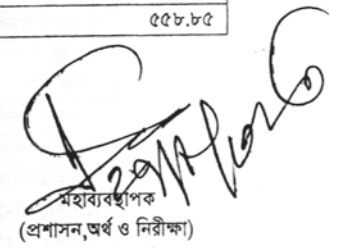 ৫৫৮.৮৫
মহাব্যবস্থাপক
(প্রশাসন,অর্থ ও নিরীক্ষা)